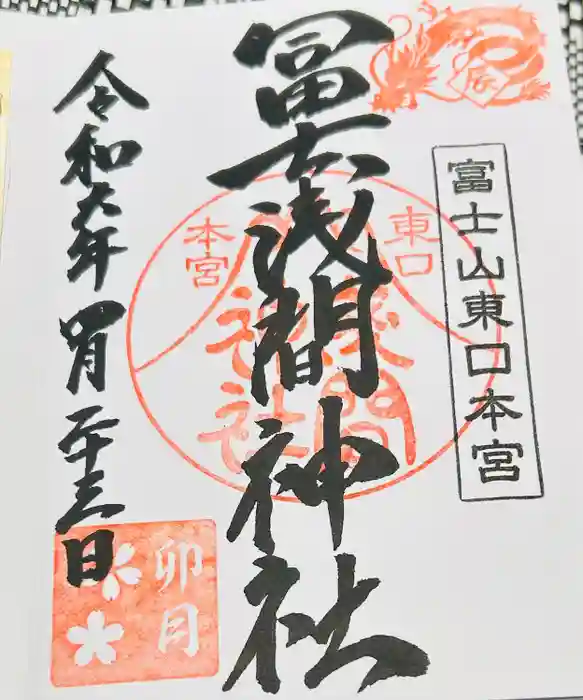 辰
富士山東口本宮
冨士浅間神社
東口
本宮
浅間
神社
令和六年 四月二十三日
卯月